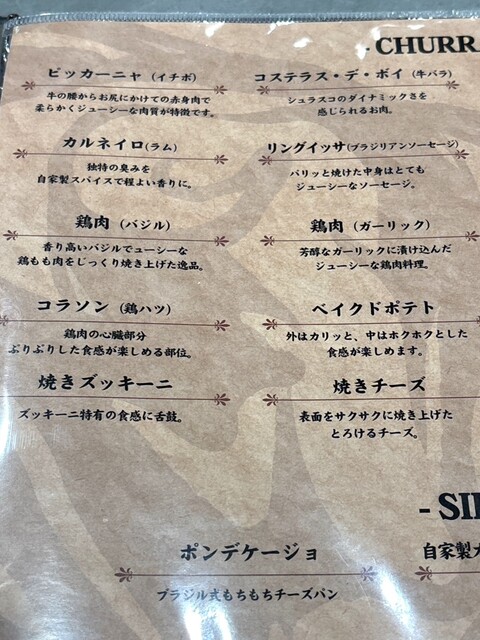 - CHURR
ピッカーニャ（イチボ）
牛の腰からお尻にかけての赤身肉で
柔らかくジューシーな肉質が特徴です。
コステラス・デ・ボイ（牛バラ）
シュラスコのダイナミックさを
感じられるお肉。
カルネイロ(ラム)
独特の臭みを
自家製スパイスで程よい香りに。
リングイッサ(ブラジリアンソーセージ)
パリッと焼けた中身はとても
ジューシーなソーセージ。
鶏肉（バジル）
香り高いバジルでューシーな
鶏もも肉をじっくり焼き上げた逸品。
鶏肉（ガーリック）
芳醇なガーリックに漬け込んだ
ジューシーな鶏肉料理。
コラソン（鶏ハツ）
鶏肉の心臓部分
ぷりぷりした食感が楽しめる部位。
ベイクドポテト
外はカリッと、中はホクホクとした
食感が楽しめます。
焼きズッキーニ
ズッキーニ特有の食感に舌鼓。
焼きチーズ
表面をサクサクに焼き上げた
とろけるチーズ。
- SI
ポンデケージョ
ブラジル式もちもちチーズパン
自家製